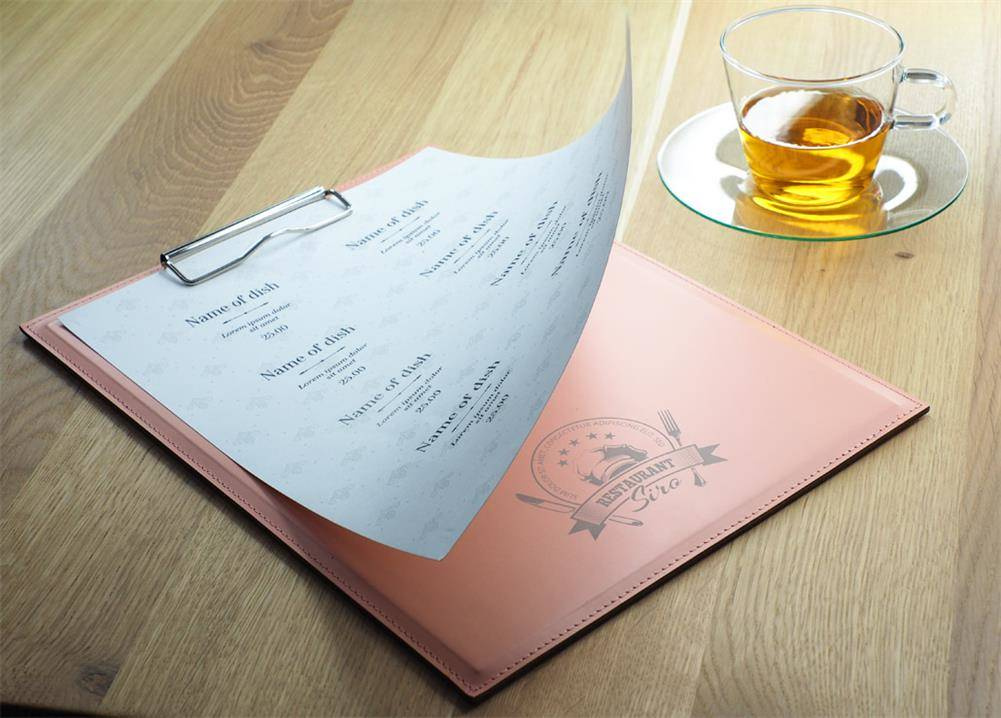 Name of dish
Lorem ipsum dolor
sit amet
25.00
Name of dish
Lorem ipsum dolor
sit amet
25.00
Name of dish
Lorem ipsum dolor
sit amet
25.00
Name of dish
Lorem ipsum dolor
sit amet
25.00
Name of dish
Lorem ipsum dolor
sit amet
25.00
Name of dish
Lorem ipsum dolor
sit amet
25.00
Name of dish
Lorem ipsum dolor
sit amet
25.00
Name of dish
Lorem ipsum dolor
sit amet
25.00
DOLOR SIT AMET, CONSECTETUR ADIPISCING ELIT, SED
RESTAURANT
Siro